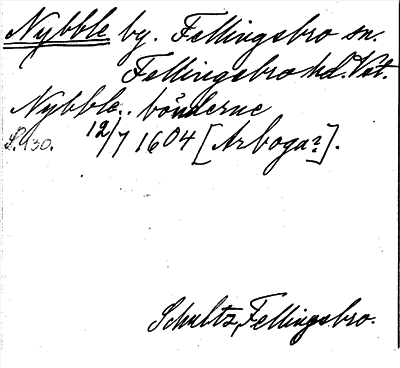 Nybble by. Fellingsbro sn.
Fellingsbro hd. Vst.
Nybble.. bönderne
S. 130. 12/7 1604 [Arboga?].
Schultz, Fellingsbro.